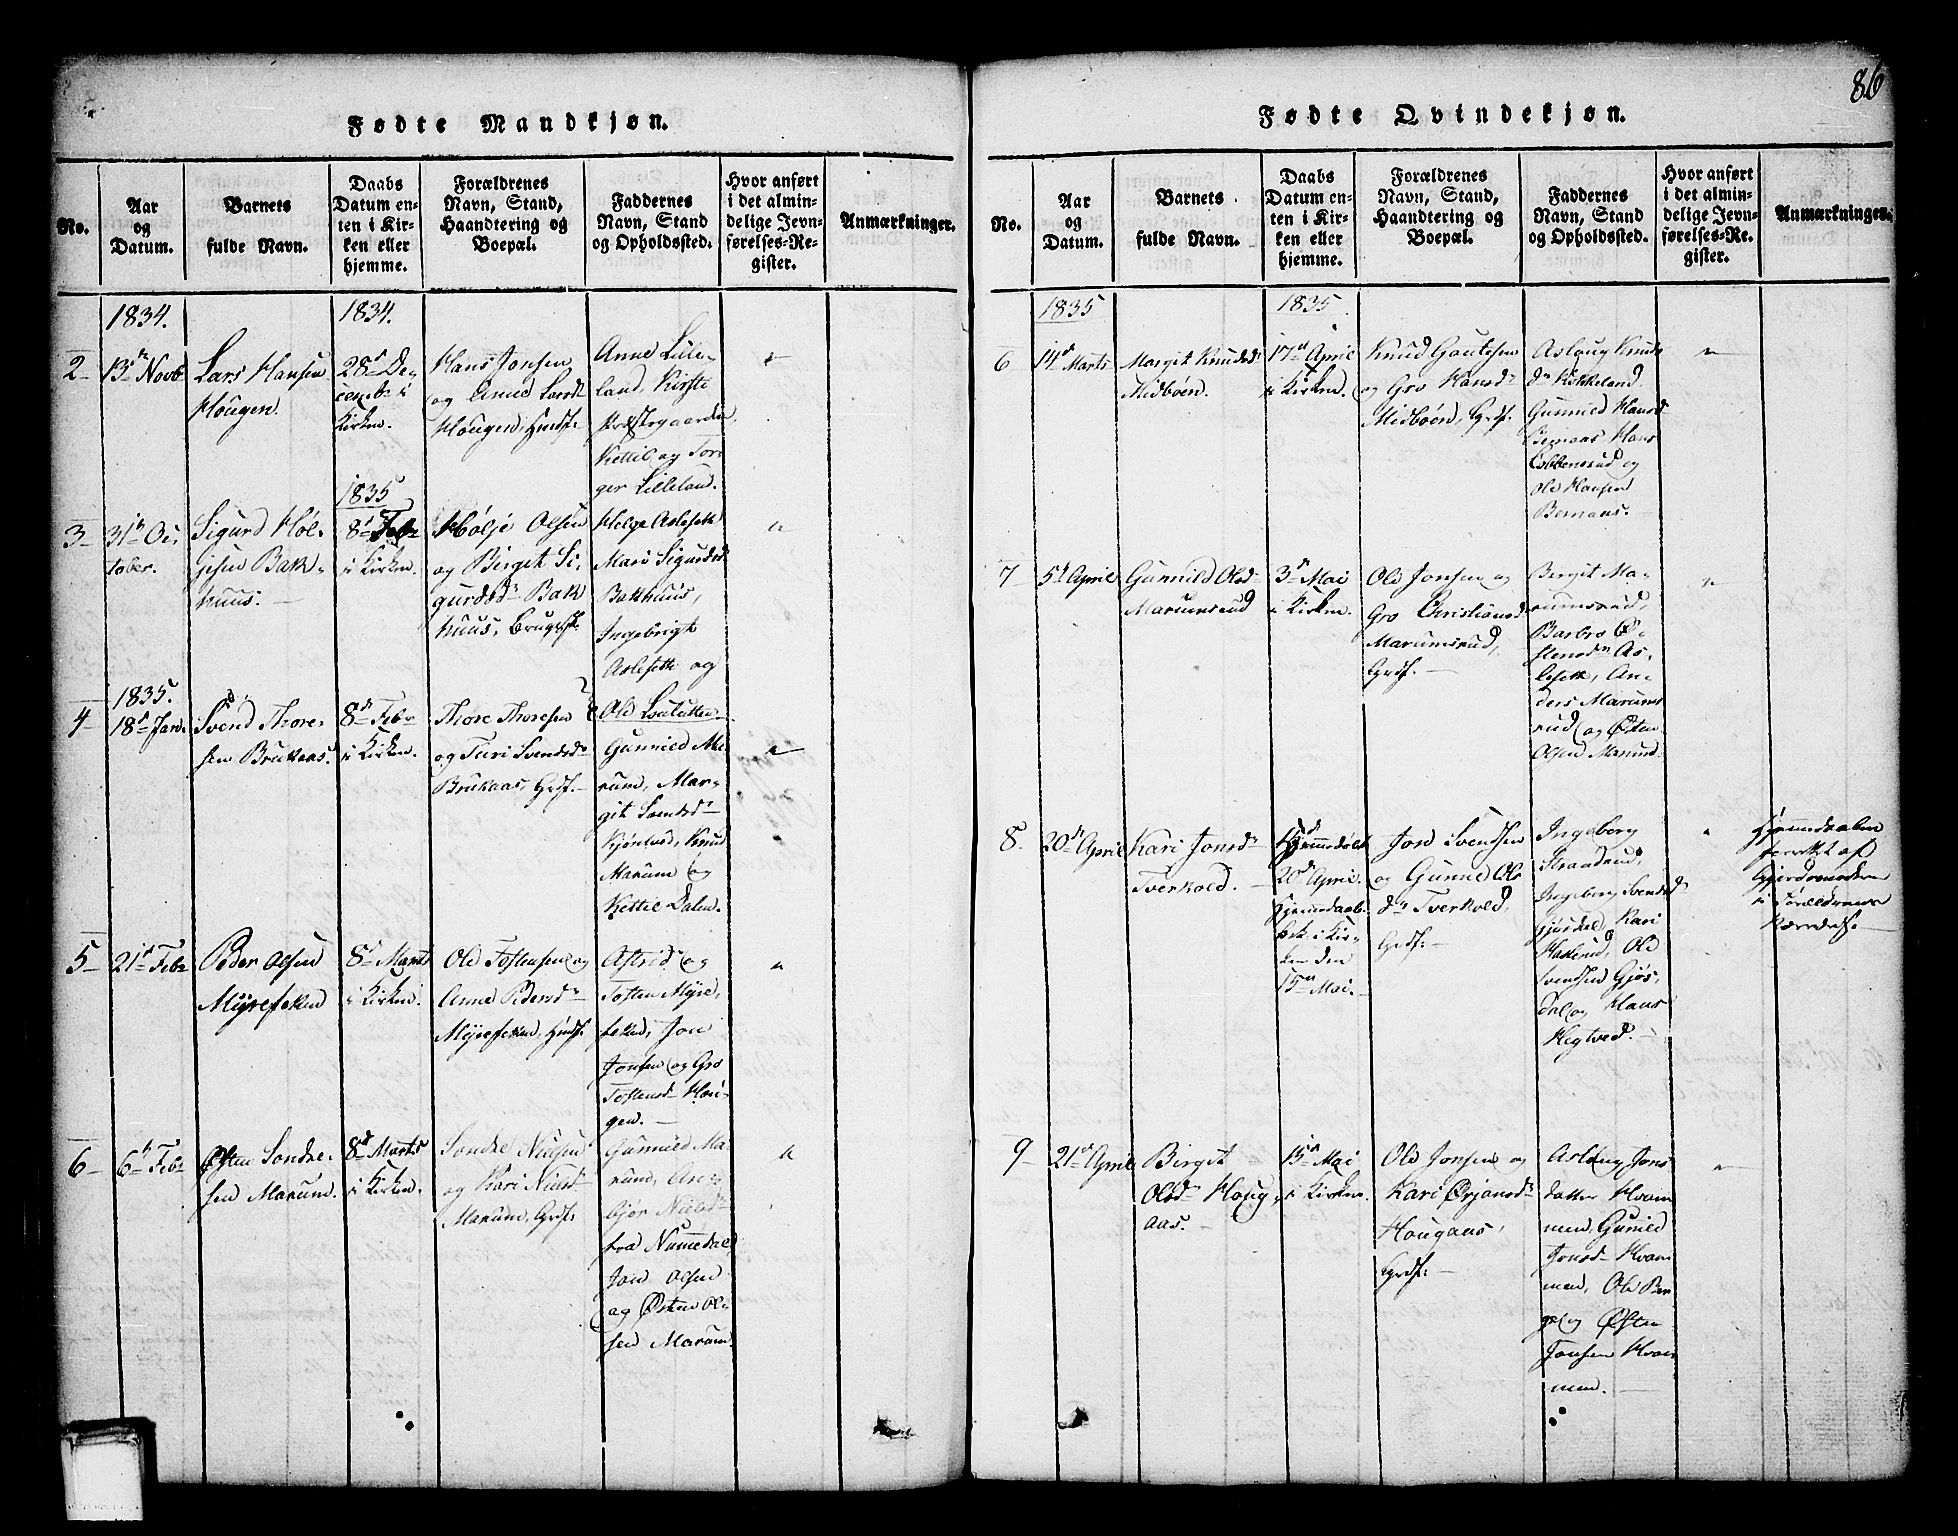 86
Fødte Mandkjøn.
No.
Aar
og
Datum.
Barnets
fulde Navn.
Daabs
Datum en-
ten i Kir-
ken eller
hjemme.
Forældrenes
Navn, Stand,
Haandtering og
Boepæl.
Faddernes
Navn, Stand
og Opholdssted.
Hvor anført
i det almin-
delige Jevn-
førelses-Re-
gister.
Anmærkninger.
1834.
1834.
2
13de Novb
Lars Hansen
Hougen.
28de De-
cember i
Kirken.
Hans Jonsen
og Anne Larsd
Hougen,
Anne Lille-
land, Kirsti
Kettil og Tor-
ger Lilleland.
3
31te Oc-
tober.
Sigurd Høl-
jesen Bak-
huus.
1835
8de Febr
i Kirken.
Hølje Olsen
og Birgit Si-
gurdsdr Bak
huus,
Helge Aslesett
Mari Sigurdsd
Bakhuus,
Ingebrigt
Aslesett og
Ole
4
1835.
18de Jan.
Svend Thore-
sen Brukaas.
8de Febr
i Kirken.
Thore Thoresen
og Turi Svendsdr
Brukaas, Grdf.
Gunnild Ma
rum, Mar-
git Svendsdr
Knud
Marum og
Kettil Dalen.
5
21de Febr
Peder Olsen
8de Marts
i Kirken.
Ole Tostensen og
Anne Pedersdr
Astrid og
Tosten Myre
Jon
Jonsen og Gro
Tostensd Hou-
gen.
6
6te Febr
Østen Sondre-
sen Marum.
8de Marts
i Kirken.
Sondre Nielsen
og Kari Nielsd
Marum, Grdf.
Gunnild Ma-
rum,
bjør Nielsd
fra Nummedal
Jon Olsen
og Østen Ol-
sen Marum.
Fødte Qvindekjøn.
No.
Aar
og
Datum.
Barnets
fulde Navn.
Daabs
Datum en-
ten i Kir-
ken eller
hjemme.
Forældrenes
Navn, Stand,
Haandtering og
Boepæl.
Faddernes
Navn, Stand
og Opholdssted.
Hvor anført
i det almin-
delige Jevn-
førelses-Re-
gister.
Anmærkninger.
1835
1835
6
14de Marts
Margit Knudsdr
Midbøen.
17de April
i Kirken.
Knud Gautesen
og Gro Hansd
Midbøen, Grdf.
Aslaug Knuds
dr Kikkeland,
Gunnild Hansd
Bernaas Hans
og
Ole Hansen
Bernaas.
7
5te April
Gunnild Olsd
Marumsrud
3de Mai
i Kirken.
Ole Jonsen og
Gro Christiansd
Marumsrud,
Grdf.
Birgit Ma-
rumsrud,
Barbro Ø-
stensdr As-
lesett, An-
ders Marums
rud og Østen
Olsen Marum
8
20de April
Kari Jonsdr
Tverkold.
20de April.
i Kir-
ken den
15de Mai.
Jon Svendsen
og Gunild Ols
dr Tverkold,
Grdf.
Ingeborg
Ingeborg Svendsdr
Kari
Ole
Svendsen Gjøs-
dal og Hans
Hegtved.
Hjemmedaaben
forrettet af
Gjordemoderen
i Forældrenes
9
21de April
Birgit
Olsdr Houg-
aas.
15de Mai
i Kirken.
Ole Jonsen og
Kari Ørjansdr
Hougaas,
Grdf.
Aslaug Jons
datter Hvam
men, Gunild
Jonsd Hvam
men, Ole Ber
ge og Østen
Jonsen Hvam
men.